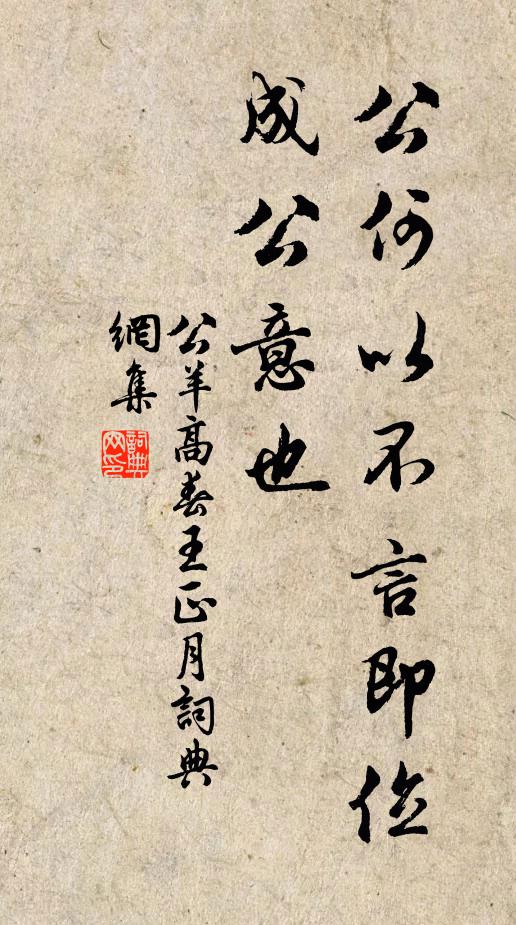 公何以不言即位
成公意也
公羊高春王正月詞典
網集
詞典
网印